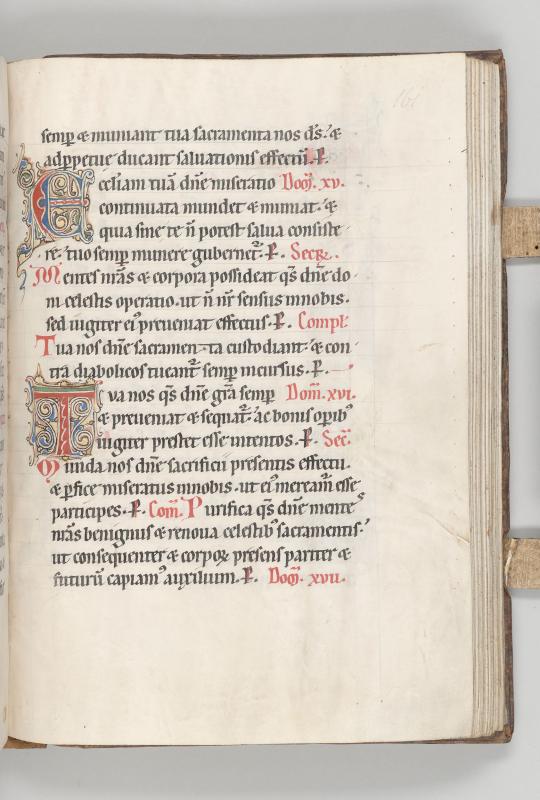 161
semp̱ & muniant tua sacramenta nos d̄s. &
ad p̱petue ducant saluationis effectū. P̱.
Ecc̄liam tuā dn̄e miseratio Dom̄. xv.
continuata mundet & muniat. &
quia sine te n̄ potest salua consiste
re. tuo semp̱ munere gubernet᷑. P̱. Secr̄.
Mentes nr̄as & corpora possideat qs̄ dn̄e do
ni celestis operatio. ut n̄ nr̄ sensus in nobis.
sed iugiter ei᷒ preueniat effectus. P̱. Compl̄.
Tua nos dn̄e sacramenta custodiant. & con
tra diabolicos tueant᷑ semp̱ incursus. P̱.
Tua nos qs̄ dn̄e grā semp̱ Dom̄. xvi.
& preueniat & sequat᷑. ac bonis opib᷒
iugiter prestet esse intentos. P̱. Sec̄.
Munda nos dn̄e sacrificii presentis effectu.
& p̱fice miseratus in nobis. ut ei᷒ meream᷑ esse
participes. P̱. Com̄. Purifica qs̄ dn̄e mentes
nr̄as benignus & renoua celestib᷒ sacramentis.
ut consequenter & corpoꝝ presens pariter &
futurū capiam᷒ auxilium. P̱. Dom̄. xvii.